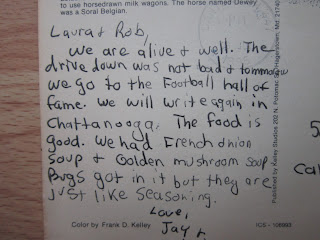 to use horsedrawn milk wagons. The horse named Dewey
was a Soral Belgian.
Laura & Rob,
We are alive & well. The
drive down was not bad & tommorow
we go to the Football hall of
fame. We will write again in
Chattanooga. The food is
good. We had French onion
soup & Golden mushroom soup
Bugs got in it but they are
just like seasoning.
Love,
Jay
Color by Frank D. Kelley
Published by Kelley Studios 202 N. Potomac St. Hagerstown, Md. 21740